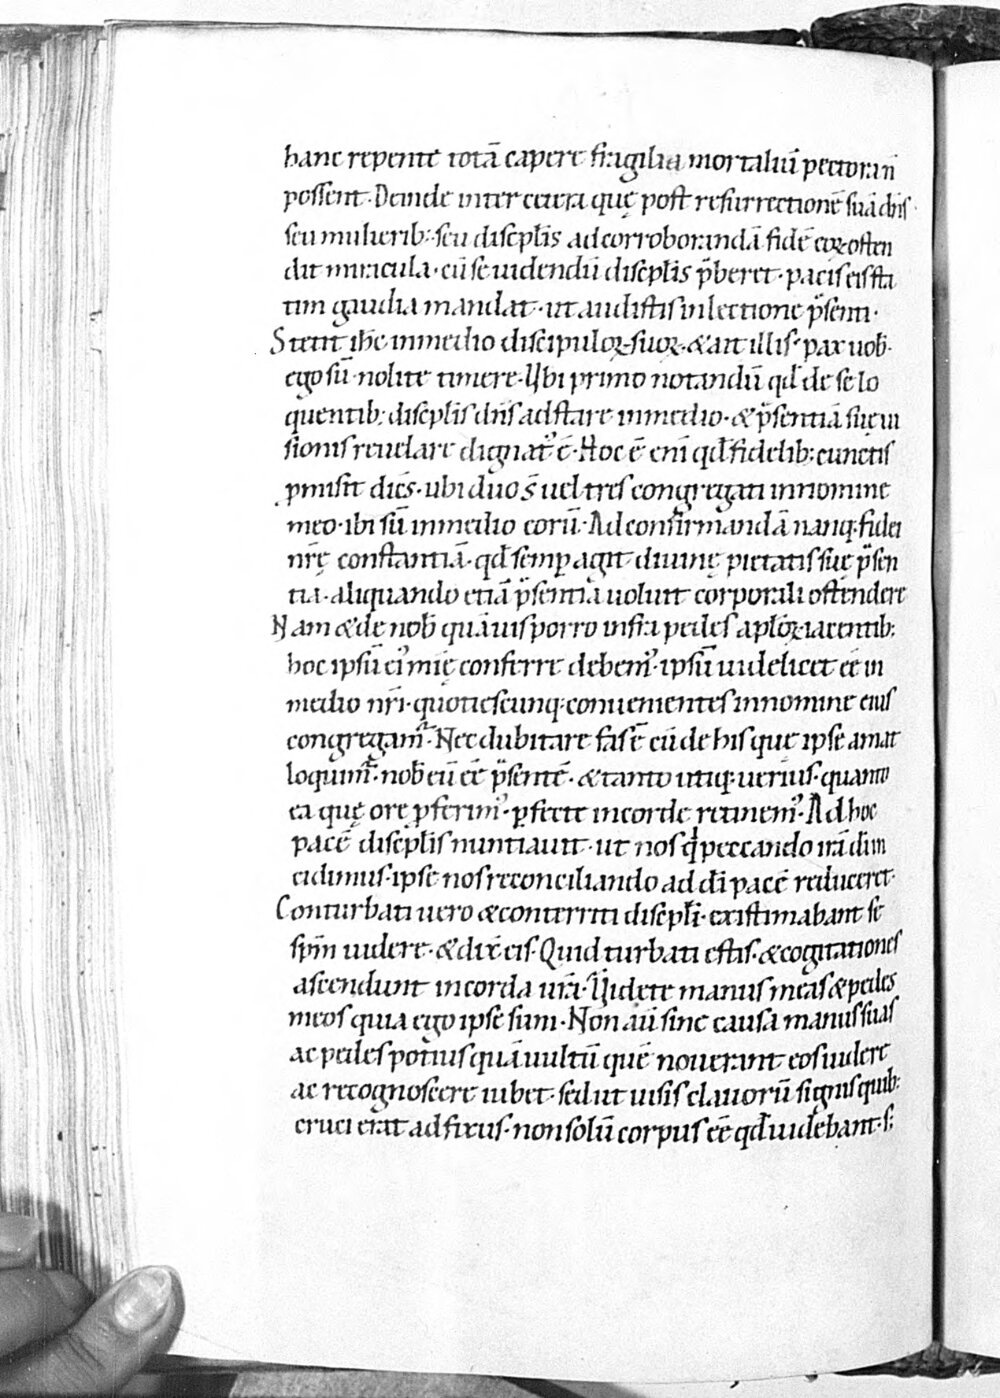 hanc repente totā capere fragilia mortaliū pectora n̄
possent. Deinde inter cetera quę post resurrectionē suā dn̄s
seu mulierib; seu discipl̄is ad corroborandā fidē eoꝝ osten
dit miracula. cū se uidendū discipl̄is p̄beret. pacis eis sta
tim gaudia mandat. ut audistis in lectione p̄senti.
Stetit ih̄c in medio discipuloꝝ suoꝝ. & ait illis. pax uob̄.
ego sū. nolite timere. Ubi primo notandū qd̄ de se lo
quentib; discipl̄is dn̄s adstare in medio. & p̄sentiā suę ui
sionis reuelare dignatꝰ ē. Hoc ē enī qd̄ fidelib; cunctis
ꝓmisit dicēs. ubi duo s̄ uel tres congregati in nomine
meo. ibi sū in medio eorū. Ad confirmandā nanq; fidei
nr̄ę constantiā. qd̄ semꝑ agit diuinę pietatis suę p̄sen
tia. aliquando etiā p̄sentia uoluit corporali ostendere
Nam & de nob̄ quāuis porro infra pedes apl̄oꝝ iacentib;
hoc ipsū eiꝰ mię conferre debemꝰ. ipsū uidelicet eē in
medio nr̄i. quotiescunq; conuenientes in nomine eius
congregam̄. Nec dubitare fas ē eū de his que ipse amat
loquim̄. nob̄ cū eē p̄sentē. & tanto utiq; uerius. quanto
ea quę ore ꝓferimꝰ. ꝑfecte in corde retinemꝰ. Ad hoc
pacē discipl̄is nuntiauit. ut nos q̄ peccando irā dī in
cidimus. ipse nos reconciliando ad dī pacē reduceret.
Conturbati uero & conterriti discipl̄i. existimabant se
sp̄m uidere. & dix̄ eis. Quid turbati estis. & cogitationes
ascendunt in corda ur̄a. Uidete manus meas & pedes
meos quia ego ipse sum. Non aū sine causa manus suas
ac pedes potius quā uultū quē nouerant eos uidere
ac recognoscere iubet. sed ut uisis clauorū signis quib;
cruci erat adfixus. non solū corpus eē qd̄ uidebant. s;